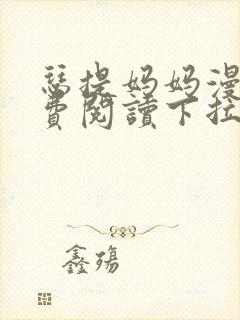 瑟提妈妈漫
费阅讀下拉
鑫殇